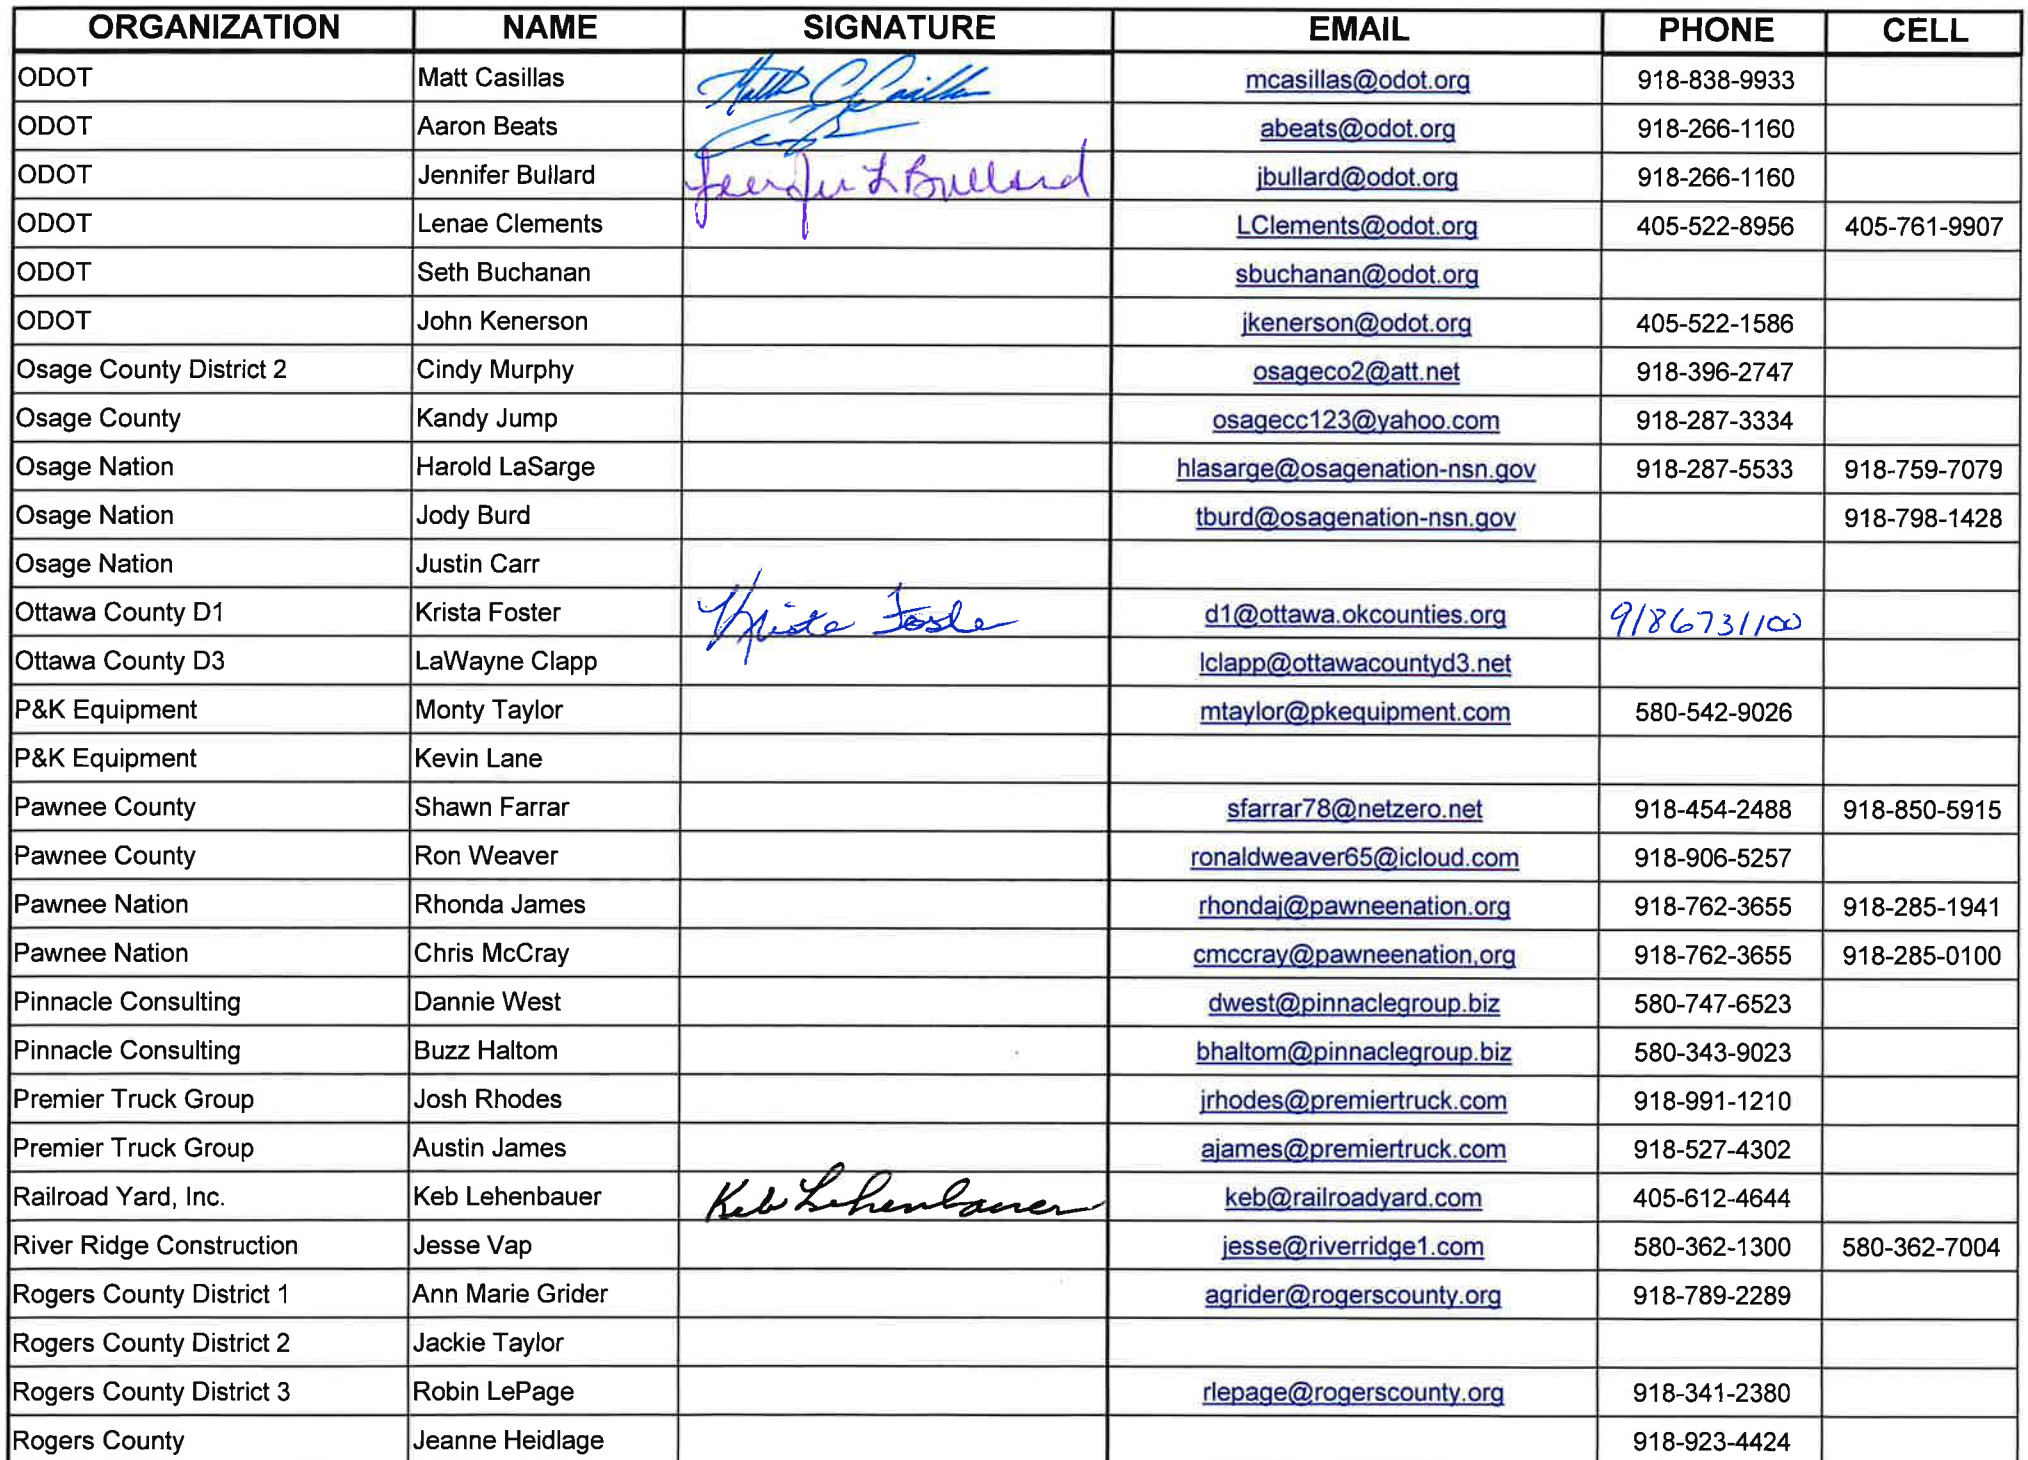 ORGANIZATION NAME SIGNATURE EMAIL PHONE CELL
ODOT Matt Casillas Matt C Casillas mcasillas@odot.org 918-838-9933
ODOT Aaron Beats abeats@odot.org 918-266-1160
ODOT Jennifer Bullard Jennifer L Bullard jbullard@odot.org 918-266-1160
ODOT Lenae Clements LClements@odot.org 405-522-8956 405-761-9907
ODOT Seth Buchanan sbuchanan@odot.org
ODOT John Kenerson jkenerson@odot.org 405-522-1586
Osage County District 2 Cindy Murphy osageco2@att.net 918-396-2747
Osage County Kandy Jump osagecc123@yahoo.com 918-287-3334
Osage Nation Harold LaSarge hlasarge@osagenation-nsn.gov 918-287-5533 918-759-7079
Osage Nation Jody Burd tburd@osagenation-nsn.gov 918-798-1428
Osage Nation Justin Carr
Ottawa County D1 Krista Foster Krista Foster d1@ottawa.okcounties.org 9186731100
Ottawa County D3 LaWayne Clapp lclapp@ottawacountyd3.net
P&K Equipment Monty Taylor mtaylor@pkequipment.com 580-542-9026
P&K Equipment Kevin Lane
Pawnee County Shawn Farrar sfarrar78@netzero.net 918-454-2488 918-850-5915
Pawnee County Ron Weaver ronaldweaver65@icloud.com 918-906-5257
Pawnee Nation Rhonda James rhondaj@pawneenation.org 918-762-3655 918-285-1941
Pawnee Nation Chris McCray cmccray@pawneenation,org 918-762-3655 918-285-0100
Pinnacle Consulting Dannie West dwest@pinnaclegroup.biz 580-747-6523
Pinnacle Consulting Buzz Haltom bhaltom@pinnaclegroup.biz 580-343-9023
Premier Truck Group Josh Rhodes jrhodes@premiertruck.com 918-991-1210
Premier Truck Group Austin James ajames@premiertruck.com 918-527-4302
Railroad Yard, Inc. Keb Lehenbauer Keb Lehenbauer keb@railroadyard.com 405-612-4644
River Ridge Construction Jesse Vap jesse@riverridge1.com 580-362-1300 580-362-7004
Rogers County District 1 Ann Marie Grider agrider@rogerscounty.org 918-789-2289
Rogers County District 2 Jackie Taylor
Rogers County District 3 Robin LePage rlepage@rogerscounty.org 918-341-2380
Rogers County Jeanne Heidlage 918-923-4424